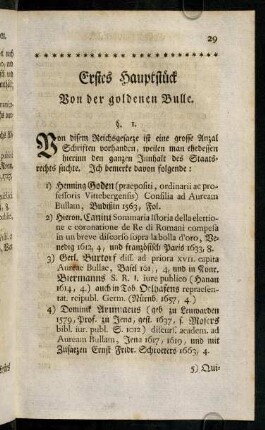 29
Erstes Hauptstück
Von der goldenen Bulle.
§. 1.
Von disem Reichsgesatze ist eine grosse Anzal
Schriften vorhanden, weilen man ehedessen
hierinn den ganzen Innhalt des Staats-
rechts suchte. Ich bemerke davon folgende:
1) Henning Goden (praepositi, ordinarii ac pro-
fessoris Vittebergensis) Consilia ad Auream
Bullam, Budißin 1563, Fol.
2) Hieron. Canini Sommaria Istoria della elettio-
ne e coronatione de Re di Romani compesa
in un breve discorso sopra la bolla d'oro, Ve-
nedig 1612, 4, und französisch Paris 1633, 8.
3) Gerl. Buxtorf diss. ad priora XVII. capita
Aureae Bullae, Basel 1613, 4, und in Conr.
Biermanns S. R. I. iure publico (Hanau
1614, 4.) auch in Tob. Oelhafens repraesen-
tat. reipubl. Germ. (Nürnb. 1657, 4)
4) Dominik Arumaeus (geb. zu Leuwarden
1579, Prof. zu Jena, gest. 1637, s. Mosers
bibl. iur. publ. S. 1012) discurs. academ. ad
Auream Bullam, Jena 1617, 1619, und mit
Zusätzen Ernst Fridr. Schroeters 1663, 4.
5) Qui-